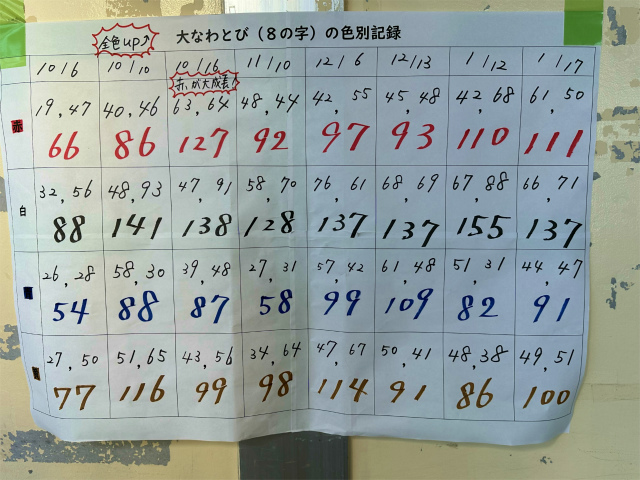 全色UP↑
大なわとび（８の字）の色別記録
10/6 10/10 10/16 11/10 12/6 12/13 1/12 1/17
赤が大成長↑
赤 19,47 40,46 63,64 48,44 42,55 45,48 42,68 61,50
66 86 127 92 97 93 110 111
白 32,56 48,93 47,91 58,70 76,61 68,69 67,88 66,71
88 141 138 128 137 137 155 137
26,28 58,30 39,48 27,31 57,42 61,48 51,31 44,47
54 88 87 58 99 109 82 91
27,50 51,65 43,56 34,64 47,67 50,41 48,38 49,51
77 116 99 98 114 91 86 100